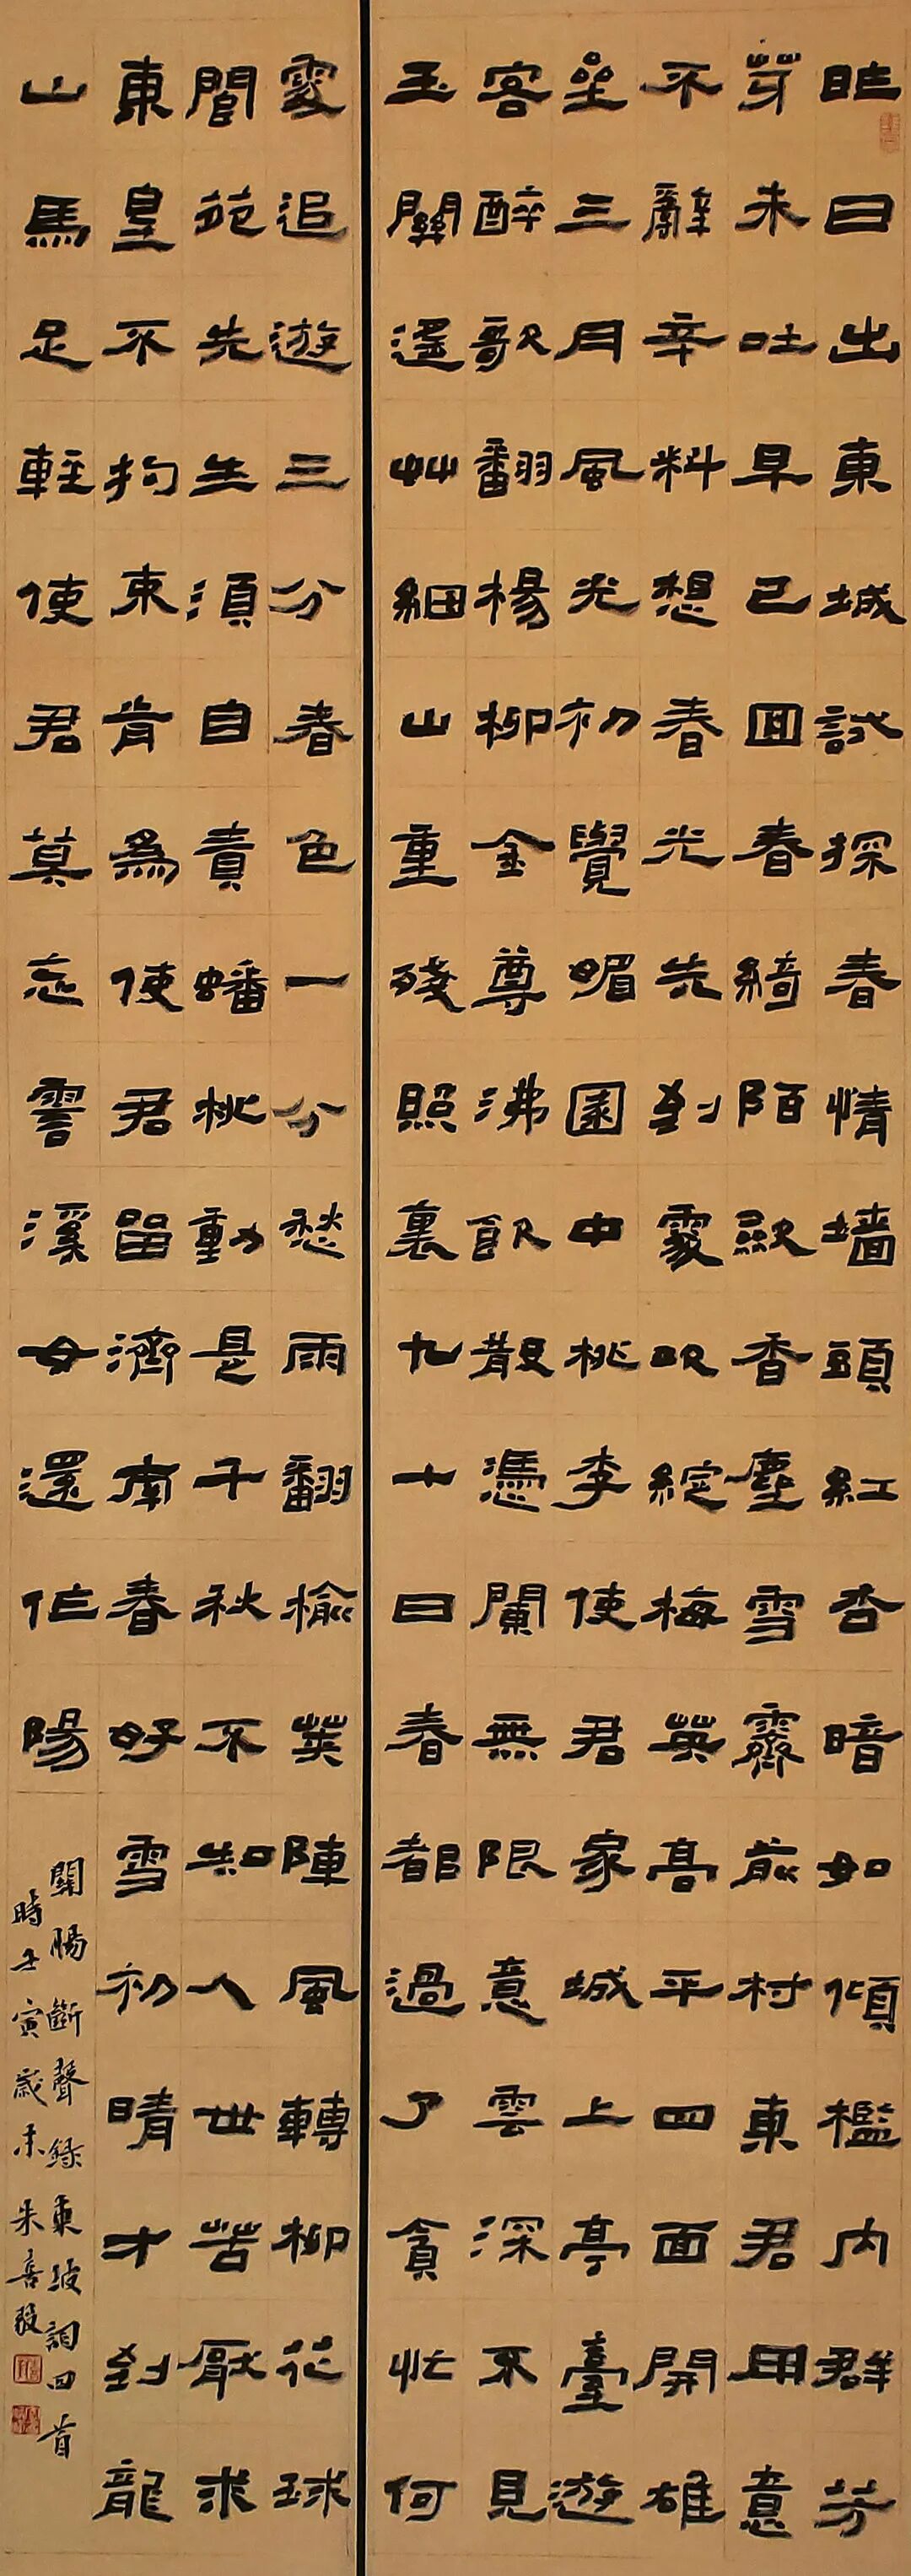 昨日出東城試探春情墻頭紅杏暗如傾檻内群芳
芽未吐早已囬春綺陌斂香塵雪霽前村東君用意
不辭辛料想春光先到處吹綻梅英高平四面開雄
壘三月風光初覺媚園中桃李使君家城上亭臺遊
客醉歌翻楊柳金尊沸飲散憑闌無限意雲深不見
玉關遙艸細山重殘照裏九十日春都過了貪忙何
處追遊三分春色一分愁雨翻榆莢陣風轉柳花球
閬苑先生須自責蟠桃動是千秋不知人世苦厭求
東皇不拘束肯為使君留濟南春好雪初晴才到龍
山馬足輕使君莫忘霅溪女還作陽
關腸斷聲錄東坡詞四首
時壬寅歲末朱喜毅